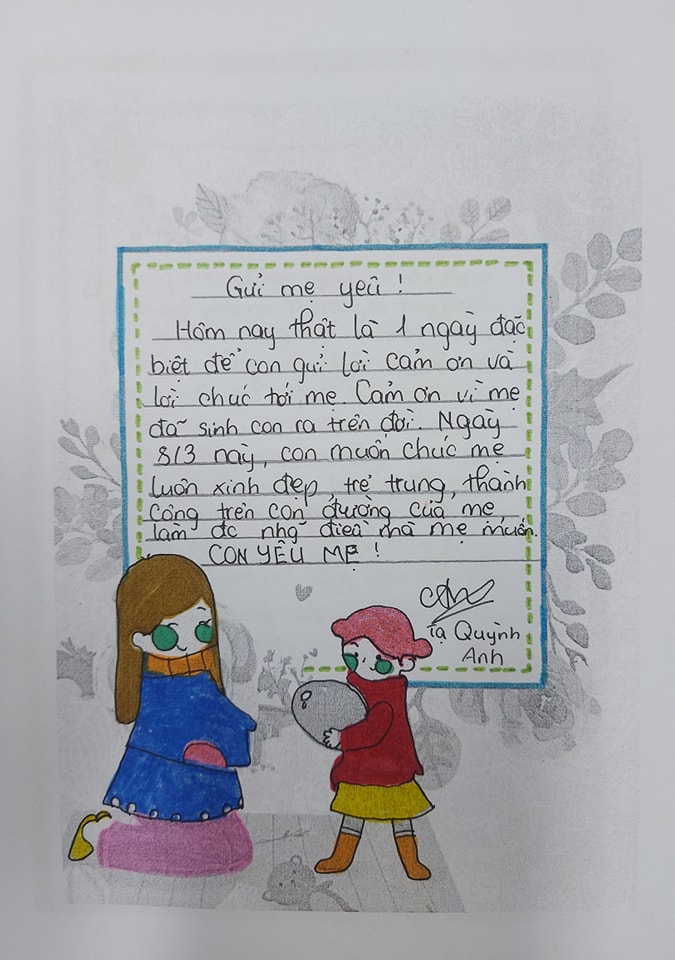 Gửi mẹ yêu !
Hôm nay thật là 1 ngày đặc
biệt để con gửi lời cảm ơn và
lời chúc tới mẹ. Cảm ơn vì mẹ
đã sinh con ra trên đời. Ngày
8/3 này, con muốn chúc mẹ
luôn xinh đẹp, trẻ trung, thành
công trên con đường của mẹ,
làm đc nhg điều mà mẹ muốn.
CON YÊU MẸ !
Tạ Quỳnh
Anh